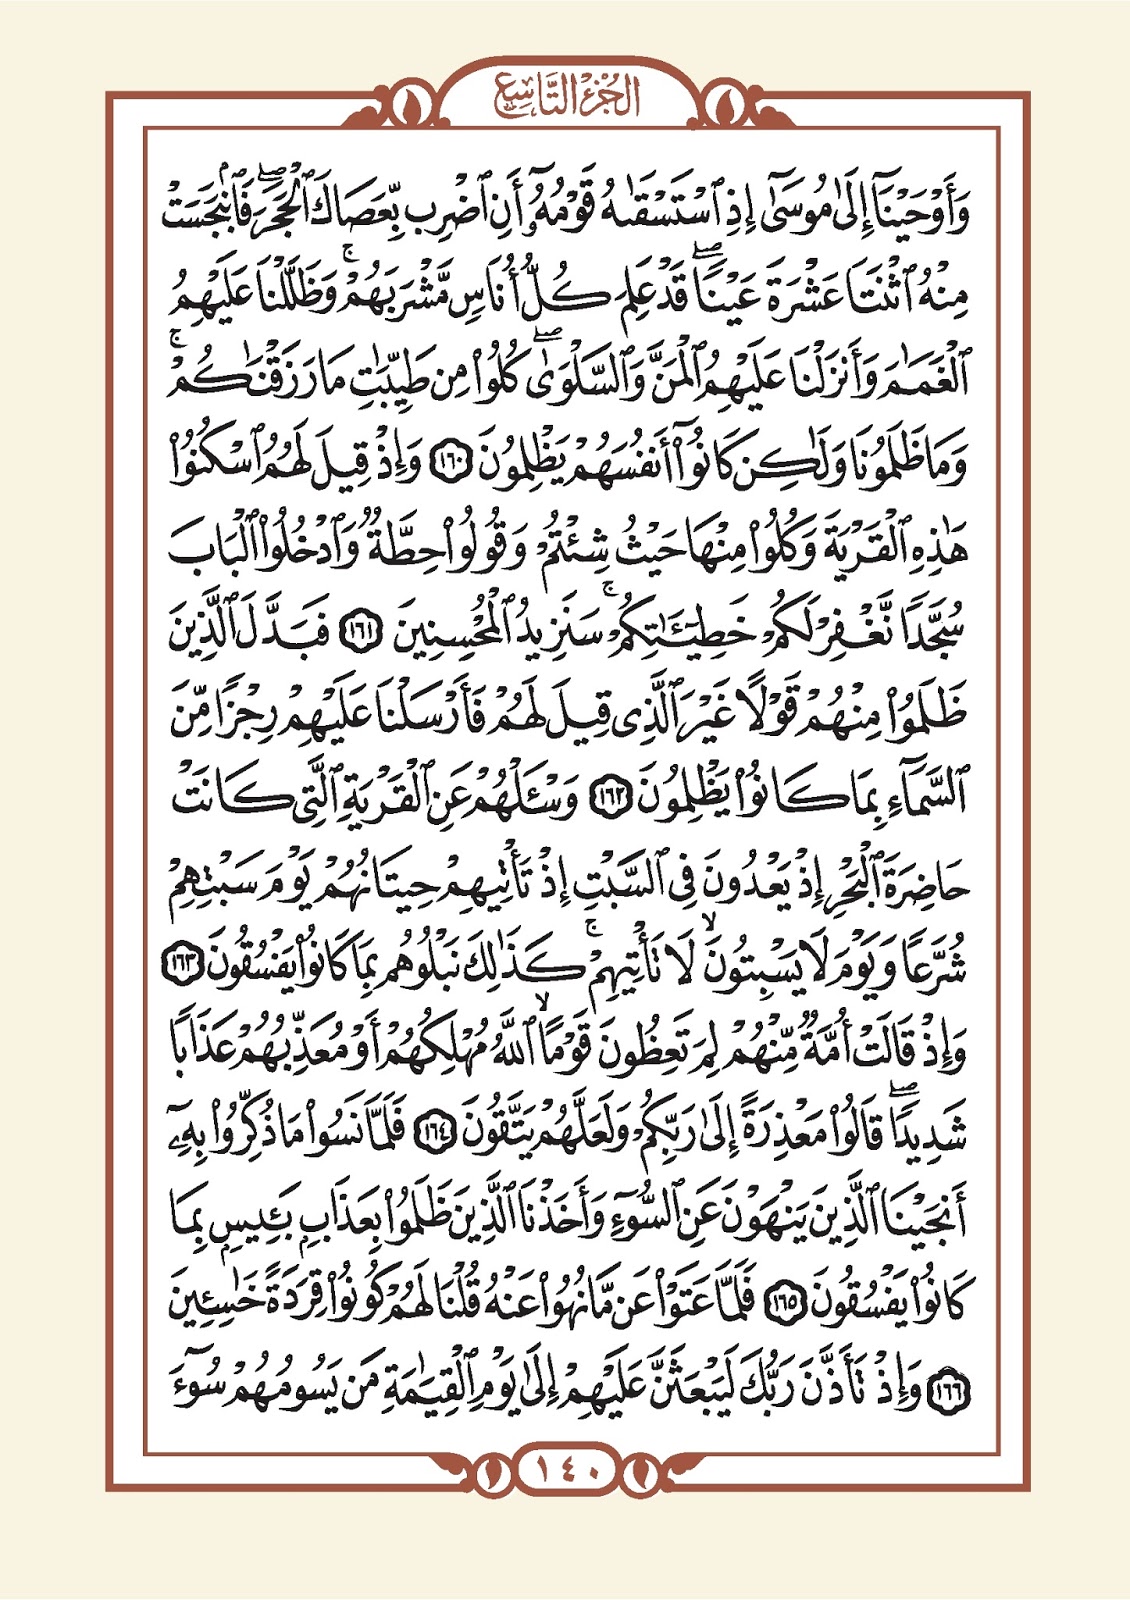 الجزء التاسع
وَأَوْحَيْنَآ إِلَىٰ مُوسَىٰٓ إِذِ ٱسْتَسْقَىٰهُ قَوْمُهُۥٓ أَنِ ٱضْرِب بِّعَصَاكَ ٱلْحَجَرَ ۖ فَٱنۢبَجَسَتْ
مِنْهُ ٱثْنَتَا عَشْرَةَ عَيْنًا ۖ قَدْ عَلِمَ كُلُّ أُنَاسٍ مَّشْرَبَهُمْ ۚ وَظَلَّلْنَا عَلَيْهِمُ
ٱلْغَمَـٰمَ وَأَنزَلْنَا عَلَيْهِمُ ٱلْمَنَّ وَٱلسَّلْوَىٰ ۖ كُلُوا۟ مِن طَيِّبَـٰتِ مَا رَزَقْنَـٰكُمْ ۚ
وَمَا ظَلَمُونَا وَلَـٰكِن كَانُوٓا۟ أَنفُسَهُمْ يَظْلِمُونَ ١٦٠ وَإِذْ قِيلَ لَهُمُ ٱسْكُنُوا۟
هَـٰذِهِ ٱلْقَرْيَةَ وَكُلُوا۟ مِنْهَا حَيْثُ شِئْتُمْ وَقُولُوا۟ حِطَّةٌ وَٱدْخُلُوا۟ ٱلْبَابَ
سُجَّدًا نَّغْفِرْ لَكُمْ خَطِيٓـَٔـٰتِكُمْ ۚ سَنَزِيدُ ٱلْمُحْسِنِينَ ١٦١ فَبَدَّلَ ٱلَّذِينَ
ظَلَمُوا۟ مِنْهُمْ قَوْلًا غَيْرَ ٱلَّذِى قِيلَ لَهُمْ فَأَرْسَلْنَا عَلَيْهِمْ رِجْزًا مِّنَ
ٱلسَّمَآءِ بِمَا كَانُوا۟ يَظْلِمُونَ ١٦٢ وَسْـَٔلْهُمْ عَنِ ٱلْقَرْيَةِ ٱلَّتِى كَانَتْ
حَاضِرَةَ ٱلْبَحْرِ إِذْ يَعْدُونَ فِى ٱلسَّبْتِ إِذْ تَأْتِيهِمْ حِيتَانُهُمْ يَوْمَ سَبْتِهِمْ
شُرَّعًا وَيَوْمَ لَا يَسْبِتُونَ ۙ لَا تَأْتِيهِمْ ۚ كَذَٰلِكَ نَبْلُوهُم بِمَا كَانُوا۟ يَفْسُقُونَ ١٦٣
وَإِذْ قَالَتْ أُمَّةٌ مِّنْهُمْ لِمَ تَعِظُونَ قَوْمًا ۙ ٱللَّهُ مُهْلِكُهُمْ أَوْ مُعَذِّبُهُمْ عَذَابًا
شَدِيدًا ۖ قَالُوا۟ مَعْذِرَةً إِلَىٰ رَبِّكُمْ وَلَعَلَّهُمْ يَتَّقُونَ ١٦٤ فَلَمَّا نَسُوا۟ مَا ذُكِّرُوا۟ بِهِۦٓ
أَنجَيْنَا ٱلَّذِينَ يَنْهَوْنَ عَنِ ٱلسُّوٓءِ وَأَخَذْنَا ٱلَّذِينَ ظَلَمُوا۟ بِعَذَابٍۭ بَـِٔيسٍۭ بِمَا
كَانُوا۟ يَفْسُقُونَ ١٦٥ فَلَمَّا عَتَوْا۟ عَن مَّا نُهُوا۟ عَنْهُ قُلْنَا لَهُمْ كُونُوا۟ قِرَدَةً خَـٰسِـِٔينَ
١٦٦ وَإِذْ تَأَذَّنَ رَبُّكَ لَيَبْعَثَنَّ عَلَيْهِمْ إِلَىٰ يَوْمِ ٱلْقِيَـٰمَةِ مَن يَسُومُهُمْ سُوٓءَ
١٤٠